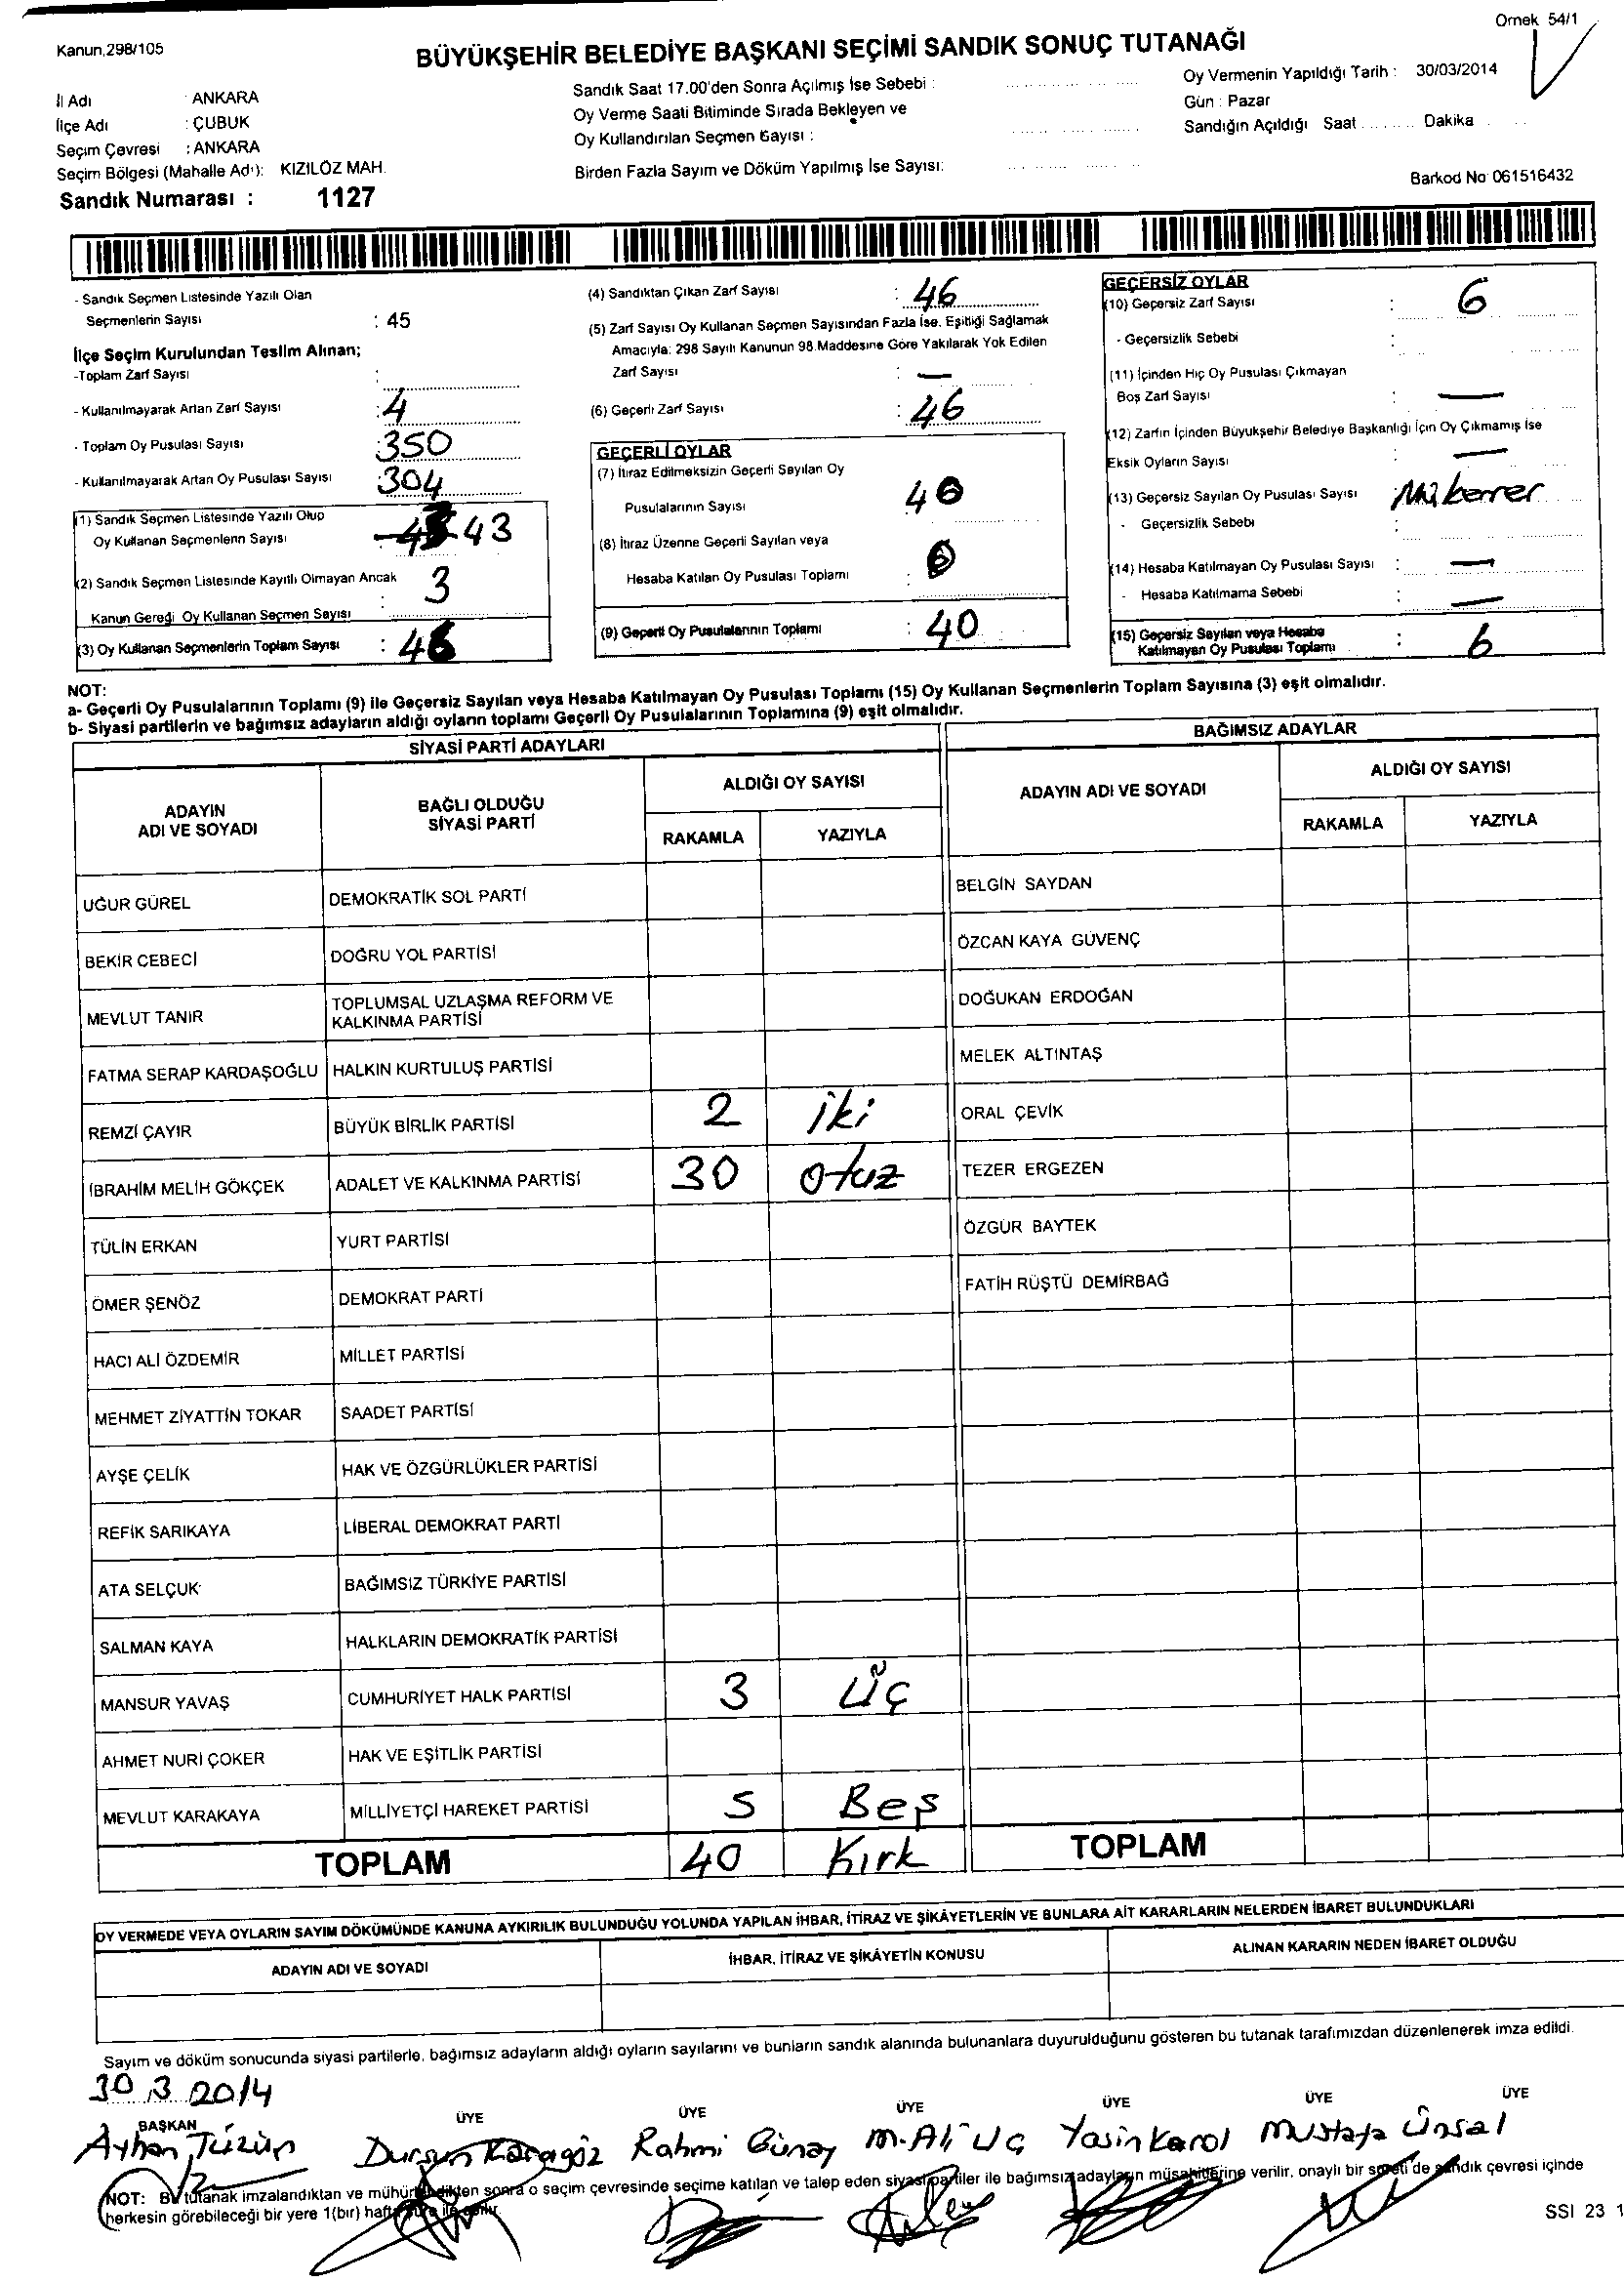 Örnek 54/1
Kanun,298/105
BÜYÜKŞEHİR BELEDİYE BAŞKANI SEÇİMİ SANDIK SONUÇ TUTANAĞI
İl Adı : ANKARA
İlçe Adı : ÇUBUK
Seçim Çevresi : ANKARA
Seçim Bölgesi (Mahalle Adı): KIZILÖZ MAH.
Sandık Numarası : 1127
Sandık Saat 17.00'den Sonra Açılmış İse Sebebi :
Oy Verme Saati Bitiminde Sırada Bekleyen ve
Oy Kullandırılan Seçmen Sayısı :
Birden Fazla Sayım ve Döküm Yapılmış İse Sayısı:
Oy Vermenin Yapıldığı Tarih : 30/03/2014
Gün : Pazar
Sandığın Açıldığı Saat ........ Dakika
Barkod No 061516432
- Sandık Seçmen Listesinde Yazılı Olan
Seçmenlerin Sayısı : 45
İlçe Seçim Kurulundan Teslim Alınan;
-Toplam Zarf Sayısı :
- Kullanılmayarak Artan Zarf Sayısı : 4
- Toplam Oy Pusulası Sayısı : 350
- Kullanılmayarak Artan Oy Pusulası Sayısı 304
(1) Sandık Seçmen Listesinde Yazılı Olup
Oy Kullanan Seçmenlerin Sayısı : 43
(2) Sandık Seçmen Listesinde Kayıtlı Olmayan Ancak
Kanun Gereği Oy Kullanan Seçmen Sayısı : 3
(3) Oy Kullanan Seçmenlerin Toplam Sayısı : 46
(4) Sandıktan Çıkan Zarf Sayısı : 46
(5) Zarf Sayısı Oy Kullanan Seçmen Sayısından Fazla İse, Eşitliği Sağlamak
Amacıyla: 298 Sayılı Kanunun 98.Maddesine Göre Yakılarak Yok Edilen
Zarf Sayısı : —
(6) Geçerli Zarf Sayısı : 46
GEÇERLİ OYLAR
(7) İtiraz Edilmeksizin Geçerli Sayılan Oy
Pusulalarının Sayısı 40
(8) İtiraz Üzerine Geçerli Sayılan veya
Hesaba Katılan Oy Pusulası Toplamı :
(9) Geçerli Oy Pusulalarının Toplamı : 40
GEÇERSİZ OYLAR
(10) Geçersiz Zarf Sayısı : 6
- Geçersizlik Sebebi :
(11) İçinden Hiç Oy Pusulası Çıkmayan
Boş Zarf Sayısı : —
(12) Zarfın İçinden Büyükşehir Belediye Başkanlığı İçin Oy Çıkmamış İse
Eksik Oyların Sayısı : —
(13) Geçersiz Sayılan Oy Pusulası Sayısı : Mükerrer
- Geçersizlik Sebebi :
(14) Hesaba Katılmayan Oy Pusulası Sayısı : —
- Hesaba Katılmama Sebebi : —
(15) Geçersiz Sayılan veya Hesaba
Katılmayan Oy Pusulası Toplamı : 6
NOT:
a- Geçerli Oy Pusulalarının Toplamı (9) ile Geçersiz Sayılan veya Hesaba Katılmayan Oy Pusulası Toplamı (15) Oy Kullanan Seçmenlerin Toplam Sayısına (3) eşit olmalıdır.
b- Siyasi partilerin ve bağımsız adayların aldığı oyların toplamı Geçerli Oy Pusulalarının Toplamına (9) eşit olmalıdır.
SİYASİ PARTİ ADAYLARI
BAĞIMSIZ ADAYLAR
ADAYIN ADI VE SOYADI
BAĞLI OLDUĞU SİYASİ PARTİ
ALDIĞI OY SAYISI
RAKAMLA YAZIYLA
ADAYIN ADI VE SOYADI
ALDIĞI OY SAYISI
RAKAMLA YAZIYLA
UĞUR GÜREL DEMOKRATİK SOL PARTİ
BEKİR CEBECİ DOĞRU YOL PARTİSİ
MEVLUT TANIR TOPLUMSAL UZLAŞMA REFORM VE KALKINMA PARTİSİ
FATMA SERAP KARDAŞOĞLU HALKIN KURTULUŞ PARTİSİ
REMZİ ÇAYIR BÜYÜK BİRLİK PARTİSİ 2 iki
İBRAHİM MELİH GÖKÇEK ADALET VE KALKINMA PARTİSİ 30 otuz
TÜLİN ERKAN YURT PARTİSİ
ÖMER ŞENÖZ DEMOKRAT PARTİ
HACI ALİ ÖZDEMİR MİLLET PARTİSİ
MEHMET ZİYATTİN TOKAR SAADET PARTİSİ
AYŞE ÇELİK HAK VE ÖZGÜRLÜKLER PARTİSİ
REFİK SARIKAYA LİBERAL DEMOKRAT PARTİ
ATA SELÇUK BAĞIMSIZ TÜRKİYE PARTİSİ
SALMAN KAYA HALKLARIN DEMOKRATİK PARTİSİ
MANSUR YAVAŞ CUMHURİYET HALK PARTİSİ 3 Üç
AHMET NURİ ÇOKER HAK VE EŞİTLİK PARTİSİ
MEVLUT KARAKAYA MİLLİYETÇİ HAREKET PARTİSİ 5 Beş
TOPLAM 40 Kırk
BELGİN SAYDAN
ÖZCAN KAYA GÜVENÇ
DOĞUKAN ERDOĞAN
MELEK ALTINTAŞ
ORAL ÇEVİK
TEZER ERGEZEN
ÖZGÜR BAYTEK
FATİH RÜŞTÜ DEMİRBAĞ
TOPLAM
OY VERMEDE VEYA OYLARIN SAYIM DÖKÜMÜNDE KANUNA AYKIRILIK BULUNDUĞU YOLUNDA YAPILAN İHBAR, İTİRAZ VE ŞİKÂYETLERİN VE BUNLARA AİT KARARLARIN NELERDEN İBARET BULUNDUKLARI
ADAYIN ADI VE SOYADI İHBAR, İTİRAZ VE ŞİKÂYETİN KONUSU ALINAN KARARIN NEDEN İBARET OLDUĞU
Sayım ve döküm sonucunda siyasi partilerle, bağımsız adayların aldığı oyların sayılarını ve bunların sandık alanında bulunanlara duyurulduğunu gösteren bu tutanak tarafımızdan düzenlenerek imza edildi.
30.3.2014
BAŞKAN ÜYE ÜYE ÜYE ÜYE ÜYE ÜYE
Ayhan Tüzün Dursun Karagöz Rahmi Günay M.Ali Uç Yasin Karol Mustafa Ünsal
NOT: Bu tutanak imzalandıktan ve mühürlendikten sonra o seçim çevresinde seçime katılan ve talep eden siyasi partiler ile bağımsız adayların müşahitlerine verilir, onaylı bir sureti de sandık çevresi içinde
herkesin görebileceği bir yere 1(bir) hafta süre ile asılır.
SSI 23 1